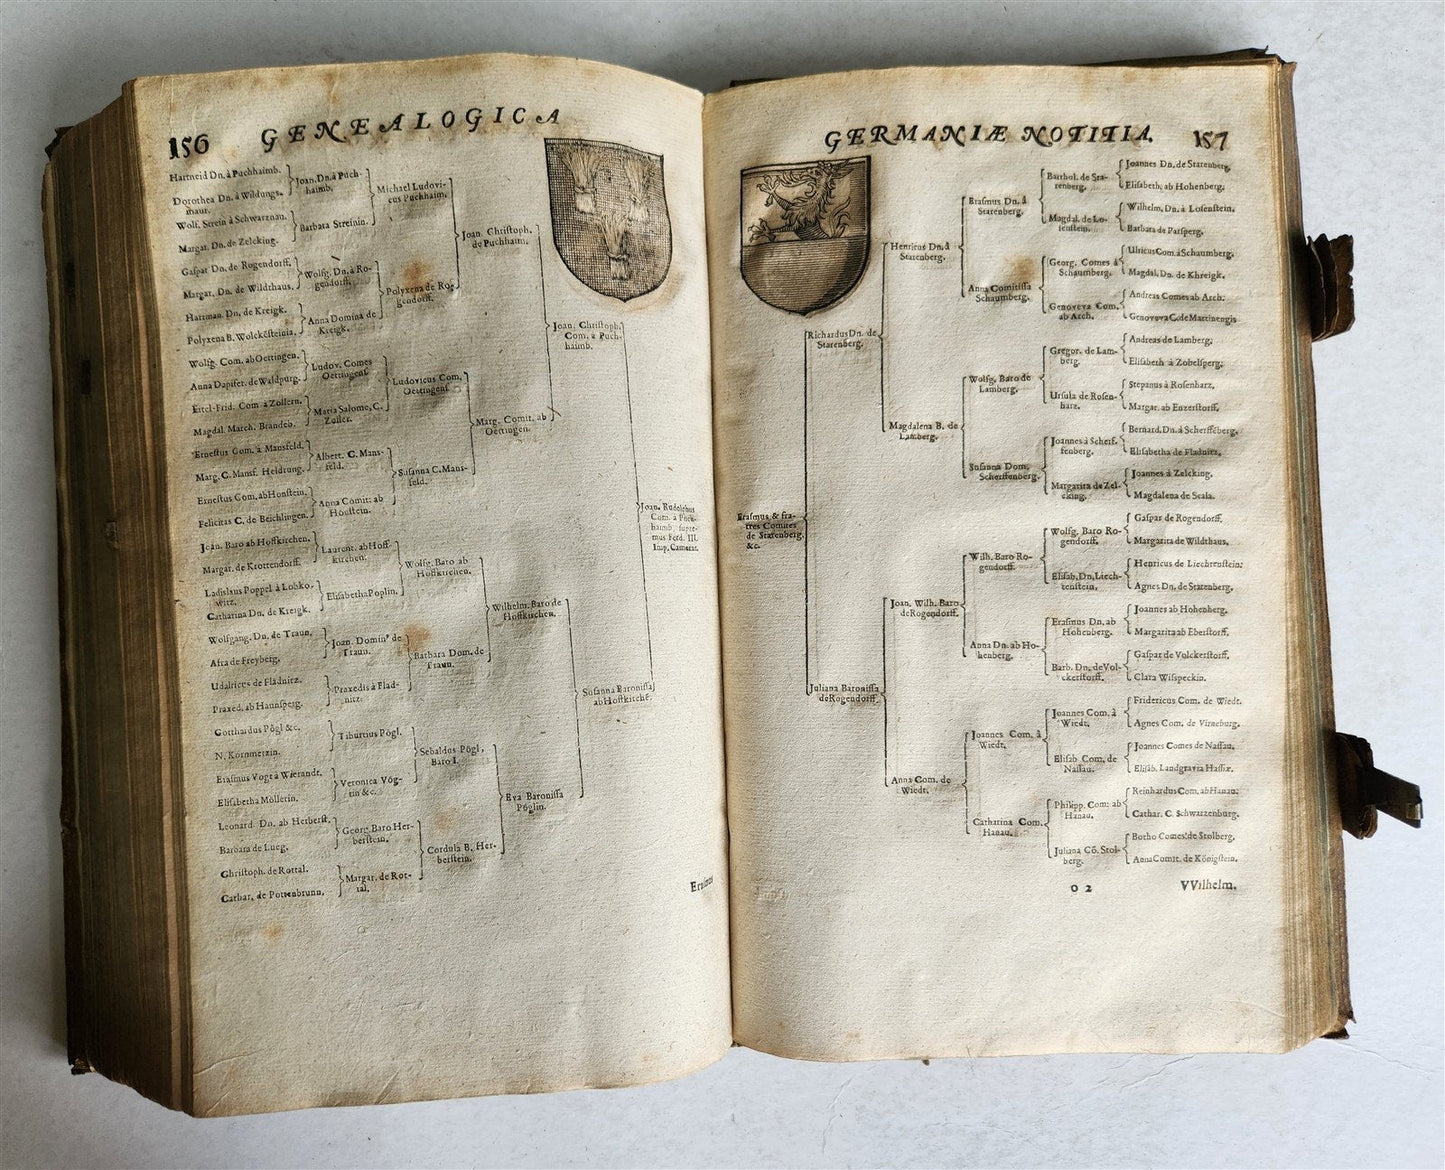 156 GENEALOGICA
Hartneid Dn. à Puchhaimb.
Dorothea Dn. à Wildungs-
maur.
Wolf. Strein à Schwarznau.
Margar. Dn. de Zelcking.
Gaspar Dn. de Rogendorff.
Margar. Dn. de Wildthaus.
Hartman. Dn. de Kreigk.
Polyxena B. Wolckēsteinia.
Wolfg. Com. ab Oettingen.
Anna Dapifer. de Waldpurg.
Eitel-Frid. Com à Zollern.
Magdal. March. Brandeb.
Ernestus Com. à Mansfeld.
Marg. C. Mansf. Heldrung.
Ernestus Com. ab Honstein.
Felicitas C. de Beichlingen.
Joan. Baro ab Hoffkirchen.
Margar. de Krottendorff.
Ladislaus Poppel à Lobko-
witz.
Catharina Dn. de Kreigk.
Wolfgang. Dn. de Traun.
Afra de Freyberg.
Udalricus de Fladnitz.
Praxed. ab Haunsperg.
Gotthardus Pögl &c.
N. Kornmetzin.
Erasmus Vogt à Wierandt.
Elisabetha Möllerin.
Leonard. Dn. ab Herberst.
Barbara de Lueg.
Christoph. de Rottal.
Cathar. de Pottenbrunn.
Joan. Dn. à Puch-
haimb.
Barbara Streinin.
Wolfg. Dn. à Ro-
gendorff.
Anna Domina de
Kreigk.
Ludov. Comes
Oettingens.
Maria Salome, C.
Zoller.
Albert. C. Mans-
feld.
Anna Comit. ab
Honstein.
Laurent. ab Hoff-
kirchen.
Elisabetha Poplin.
Joan. Domin⁹ de
Traun.
Praxedis à Flad-
nitz.
Tiburtius Pögl.
Veronica Vög-
tin &c.
Georg. Baro Her-
berstein.
Margar. de Rot-
tal.
Michael Ludovi-
cus Puchhaim.
Polyxena de Ro-
gendorff.
Ludovicus Com.
Oettingens.
Susanna C. Mans-
feld.
Wolfg. Baro ab
Hoffkirchen.
Barbara Dom. de
Traun.
Sebaldus Pögl,
Baro I.
Cordula B. Her-
berstein.
Joan. Christoph.
de Puchhaim.
Marg. Comit. ab
Oettingen.
Wilhelm. Baro de
Hoffkirchen.
Eva Baronissa
Pöglin.
Joan. Christoph.
Com. à Puch-
haimb.
Susanna Baronissa
ab Hoffkirchē.
Joan. Rudolphus
Com. à Puch-
haimb, supre-
mus Ferd. III.
Imp. Camerar.
GERMANIÆ NOTITIA. 157
Erasmus & fra-
tres Comites
de Starenberg,
&c.
Richardus Dn. de
Starenberg.
Juliana Baronissa
de Rogendorff.
Henricus Dn. à
Starenberg.
Magdalena B. de
Lamberg.
Joan. Wilh. Baro
de Rogendorff.
Anna Com. de
Wiedt.
Erasmus Dn. à
Starenberg.
Anna Comitissa
Schaumberg.
Wolfg. Baro de
Lamberg.
Susanna Dom.
Scherffenberg.
Wilh. Baro Ro-
gendorff.
Anna Dn. ab Ho-
henberg.
Joannes Com. à
Wiedt.
Catharina Com.
Hanau.
Barthol. de Sta-
renberg.
Magdal. de Lo-
senstein.
Georg. Comes à
Schaumberg.
Genoveva Com.
ab Arch.
Gregor. de Lam-
berg.
Ursula de Rosen-
harz.
Joannes à Scherf-
fenberg.
Margarita de Zel-
cking.
Wolfg. Baro Ro-
gendorff.
Elisab. Dn. Liech-
tenstein.
Erasmus Dn. ab
Hohenberg.
Barb. Dn. de Vol-
ckerstorff.
Joannes Com. à
Wiedt.
Elisab Com. de
Nassau.
Philipp. Com: ab
Hanau.
Juliana Cō. Stol-
berg.
Joannes Dn. de Starenberg.
Elisabeth. ab Hohenberg.
Wilhelm. Dn. à Losenstein.
Barbara de Parsperg.
Ulricus Com. à Schaumberg.
Magdal. Dn. de Khreigk.
Andreas Comes ab Arch.
Genoveva C. de Martinengis
Andreas de Lamberg.
Elisabeth à Zobelsperg.
Stepanus à Rosenharz.
Margar. ab Enzerstorff.
Bernard. Dn. à Scherffēberg.
Elisabetha de Fladnitz.
Joannes à Zelcking.
Magdalena de Scala.
Gaspar de Rogendorff.
Margarita de Wildthaus.
Henricus de Liechtenstein:
Agnes Dn. de Starenberg.
Joannes ab Hohenberg.
Margarita ab Eberstorff.
Gaspar de Volckerstorff.
Clara Wispeckin.
Fridericus Com. de Wiedt.
Agnes Com. de Virneburg.
Joannes Comes de Nassau.
Elisab. Landgravia Hassiæ.
Reinhardus Com. ab Hanau.
Cathar. C. Schwarzenburg.
Botho Comes de Stolberg.
Anna Comit. de Königstein.
O 2 VVilhelm.